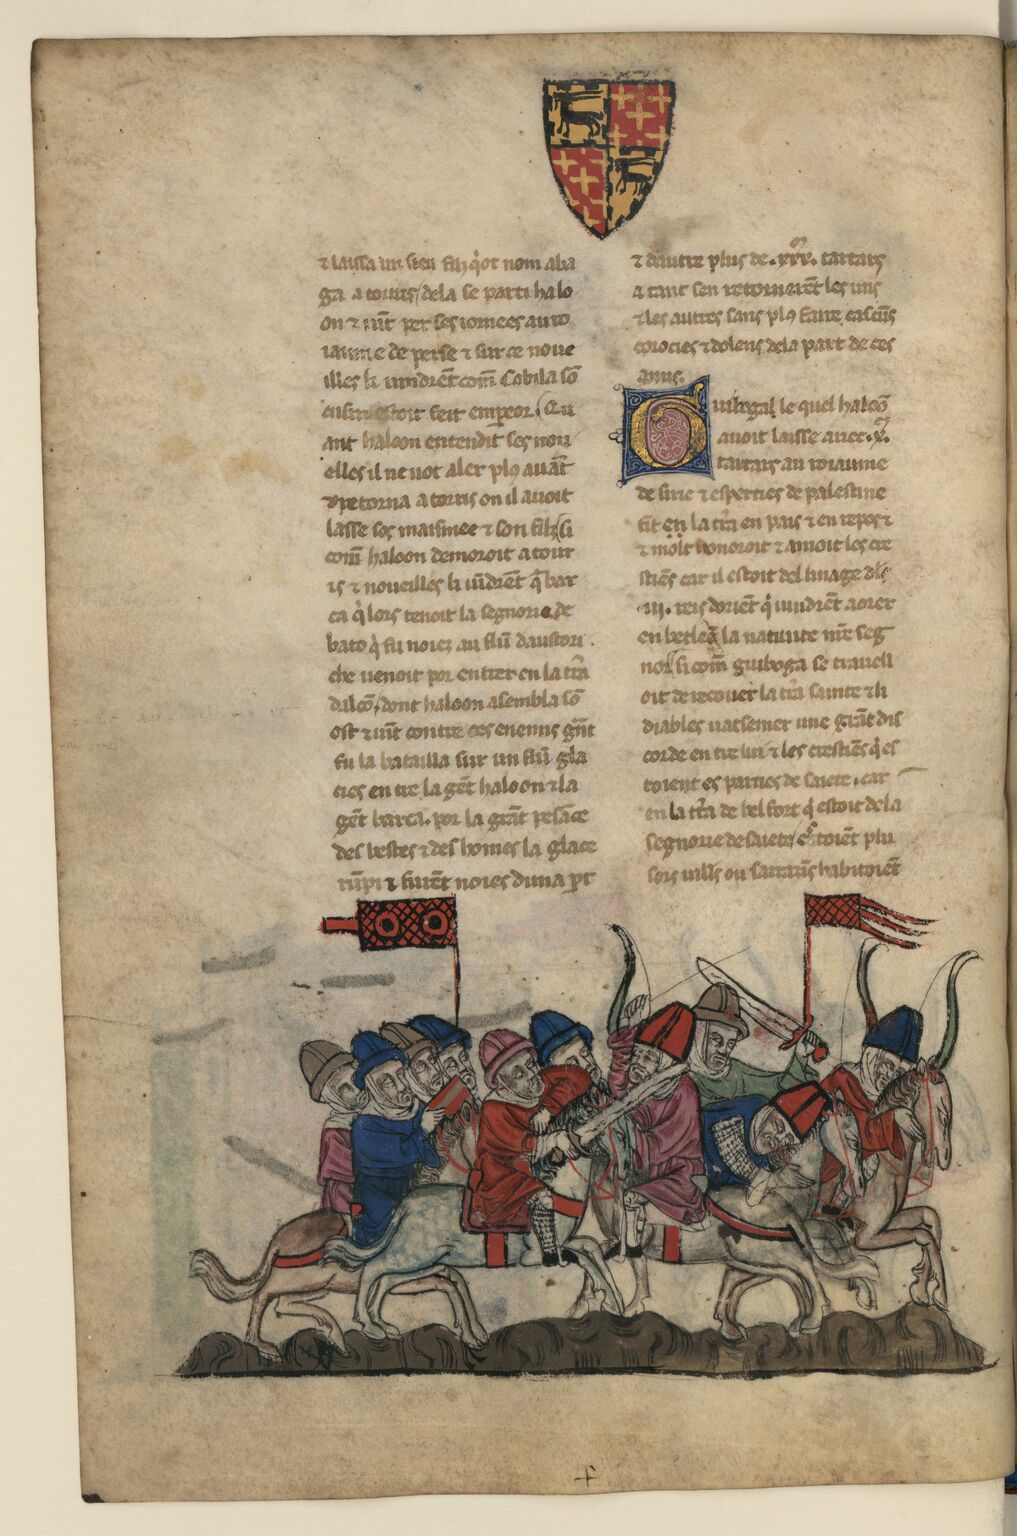 ⁊ laissa un sien filz q̇ ot nom aba
ga a touris / de la se parti halo
on ⁊ uīt per ses iornees au ro
iaume de perse ⁊ sur ce noue
illes li uindrent com̄ Cobila sō
cusin estoit feit emꝑeor. Qu
ant haloon entendit ses nou
elles il ne uot aler pl9 auāt
⁊ retorna a torris on il auoit
lasse ses maisniee ⁊ son filz Si
com̄ haloon demoroit a tour
is ⁊ noueilles li uīdrēt q̄ bar
ca q̇ lors tenoit la segnorie de
bato q̇ fu noiez au flū daustori
che uenoit por entrer en la tr̄a
dalcō / dont haloon asembla sō
ost ⁊ uīt contre ces enemis gn̄t
fu la batailla sur un flū gla
cies en tre la gēt haloon ⁊ la
gēt barca. por la grāt pesāce
des bestes ⁊ des homes la glace
rūpi ⁊ furēt noies duna ꝑt
⁊ dautre plus de .xxx.m tartars
a tant sen retornerēt les uns
⁊ les autres sans pl9 faire cascūs
corocies ⁊ dolens de la part de ces
amis.
Guibogal le quel haloō
auoit laisse auec .x.m
tartars au roiaume
de sirie ⁊ es perties de palestine
tīt en la tr̄a en pais ⁊ en repos ⁊
⁊ mōlt honoroit ⁊ amoit les cre
stiēs car il estoit del linage des
.iii. reis dorient q̇ uindrēt aorer
en betleā la natiuite nr̄e seg
nor / si com̄ guiboga se trauell
oit de recouer la tr̄a sainte ⁊ li
diables uat semer une grāt dis
corde en tre lui ⁊ les crestiēs q̇ es
toient es parties de saiete. car
en la tr̄a de bel fort q̇ estoit de la
segnorie de saiete / estoiēt plu
sors uilēs ou sarazīs habitoiēt